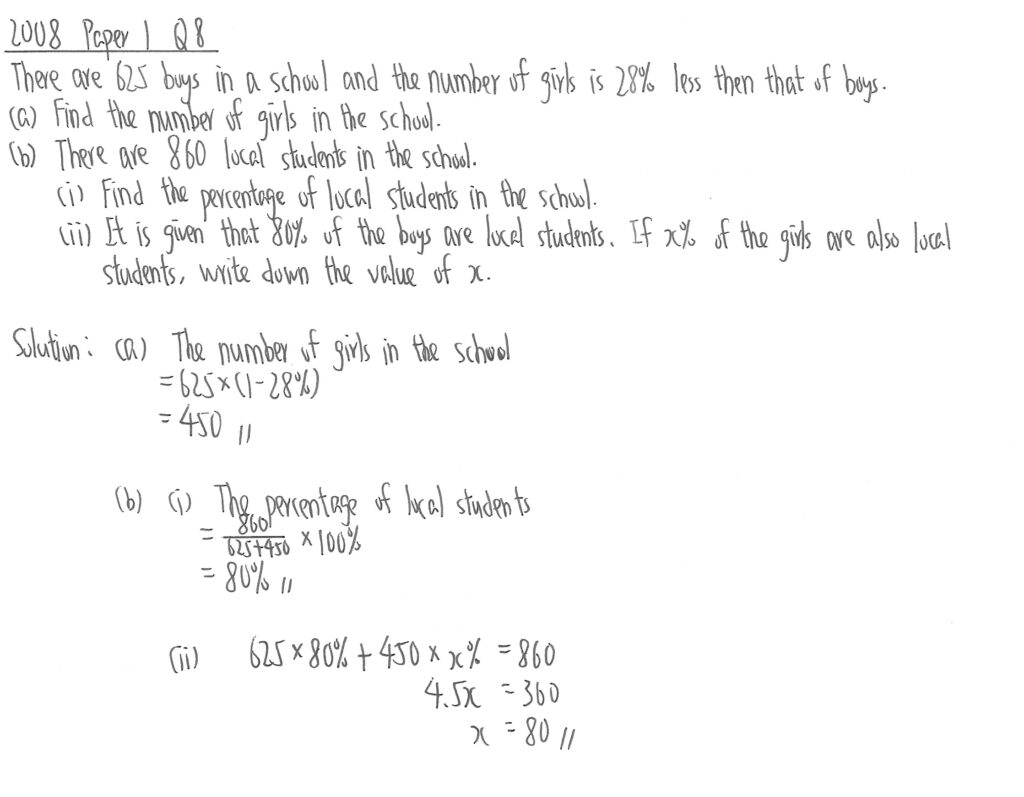 2008 Paper 1 Q8
There are 625 boys in a school and the number of girls is 28% less then that of boys.
(a) Find the number of girls in the school.
(b) There are 860 local students in the school.
(i) Find the percentage of local students in the school.
(ii) It is given that 80% of the boys are local students. If x% of the girls are also local
students, write down the value of x.
Solution: (a) The number of girls in the school
= 625 × (1-28%)
= 450 //
(b) (i) The percentage of local students
= 860/(625+450) × 100%
= 80% //
(ii) 625 × 80% + 450 × x% = 860
4.5x = 360
x = 80 //